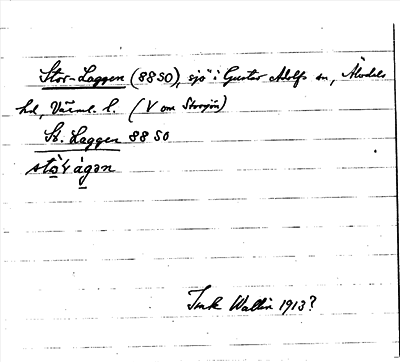 Stor-Laggen (8850), sjö i Gustav Adolfs sn, Älvdals
hd, Värml. l. (V om Storsjön)
St. Laggen 8850
Wallin 1913?